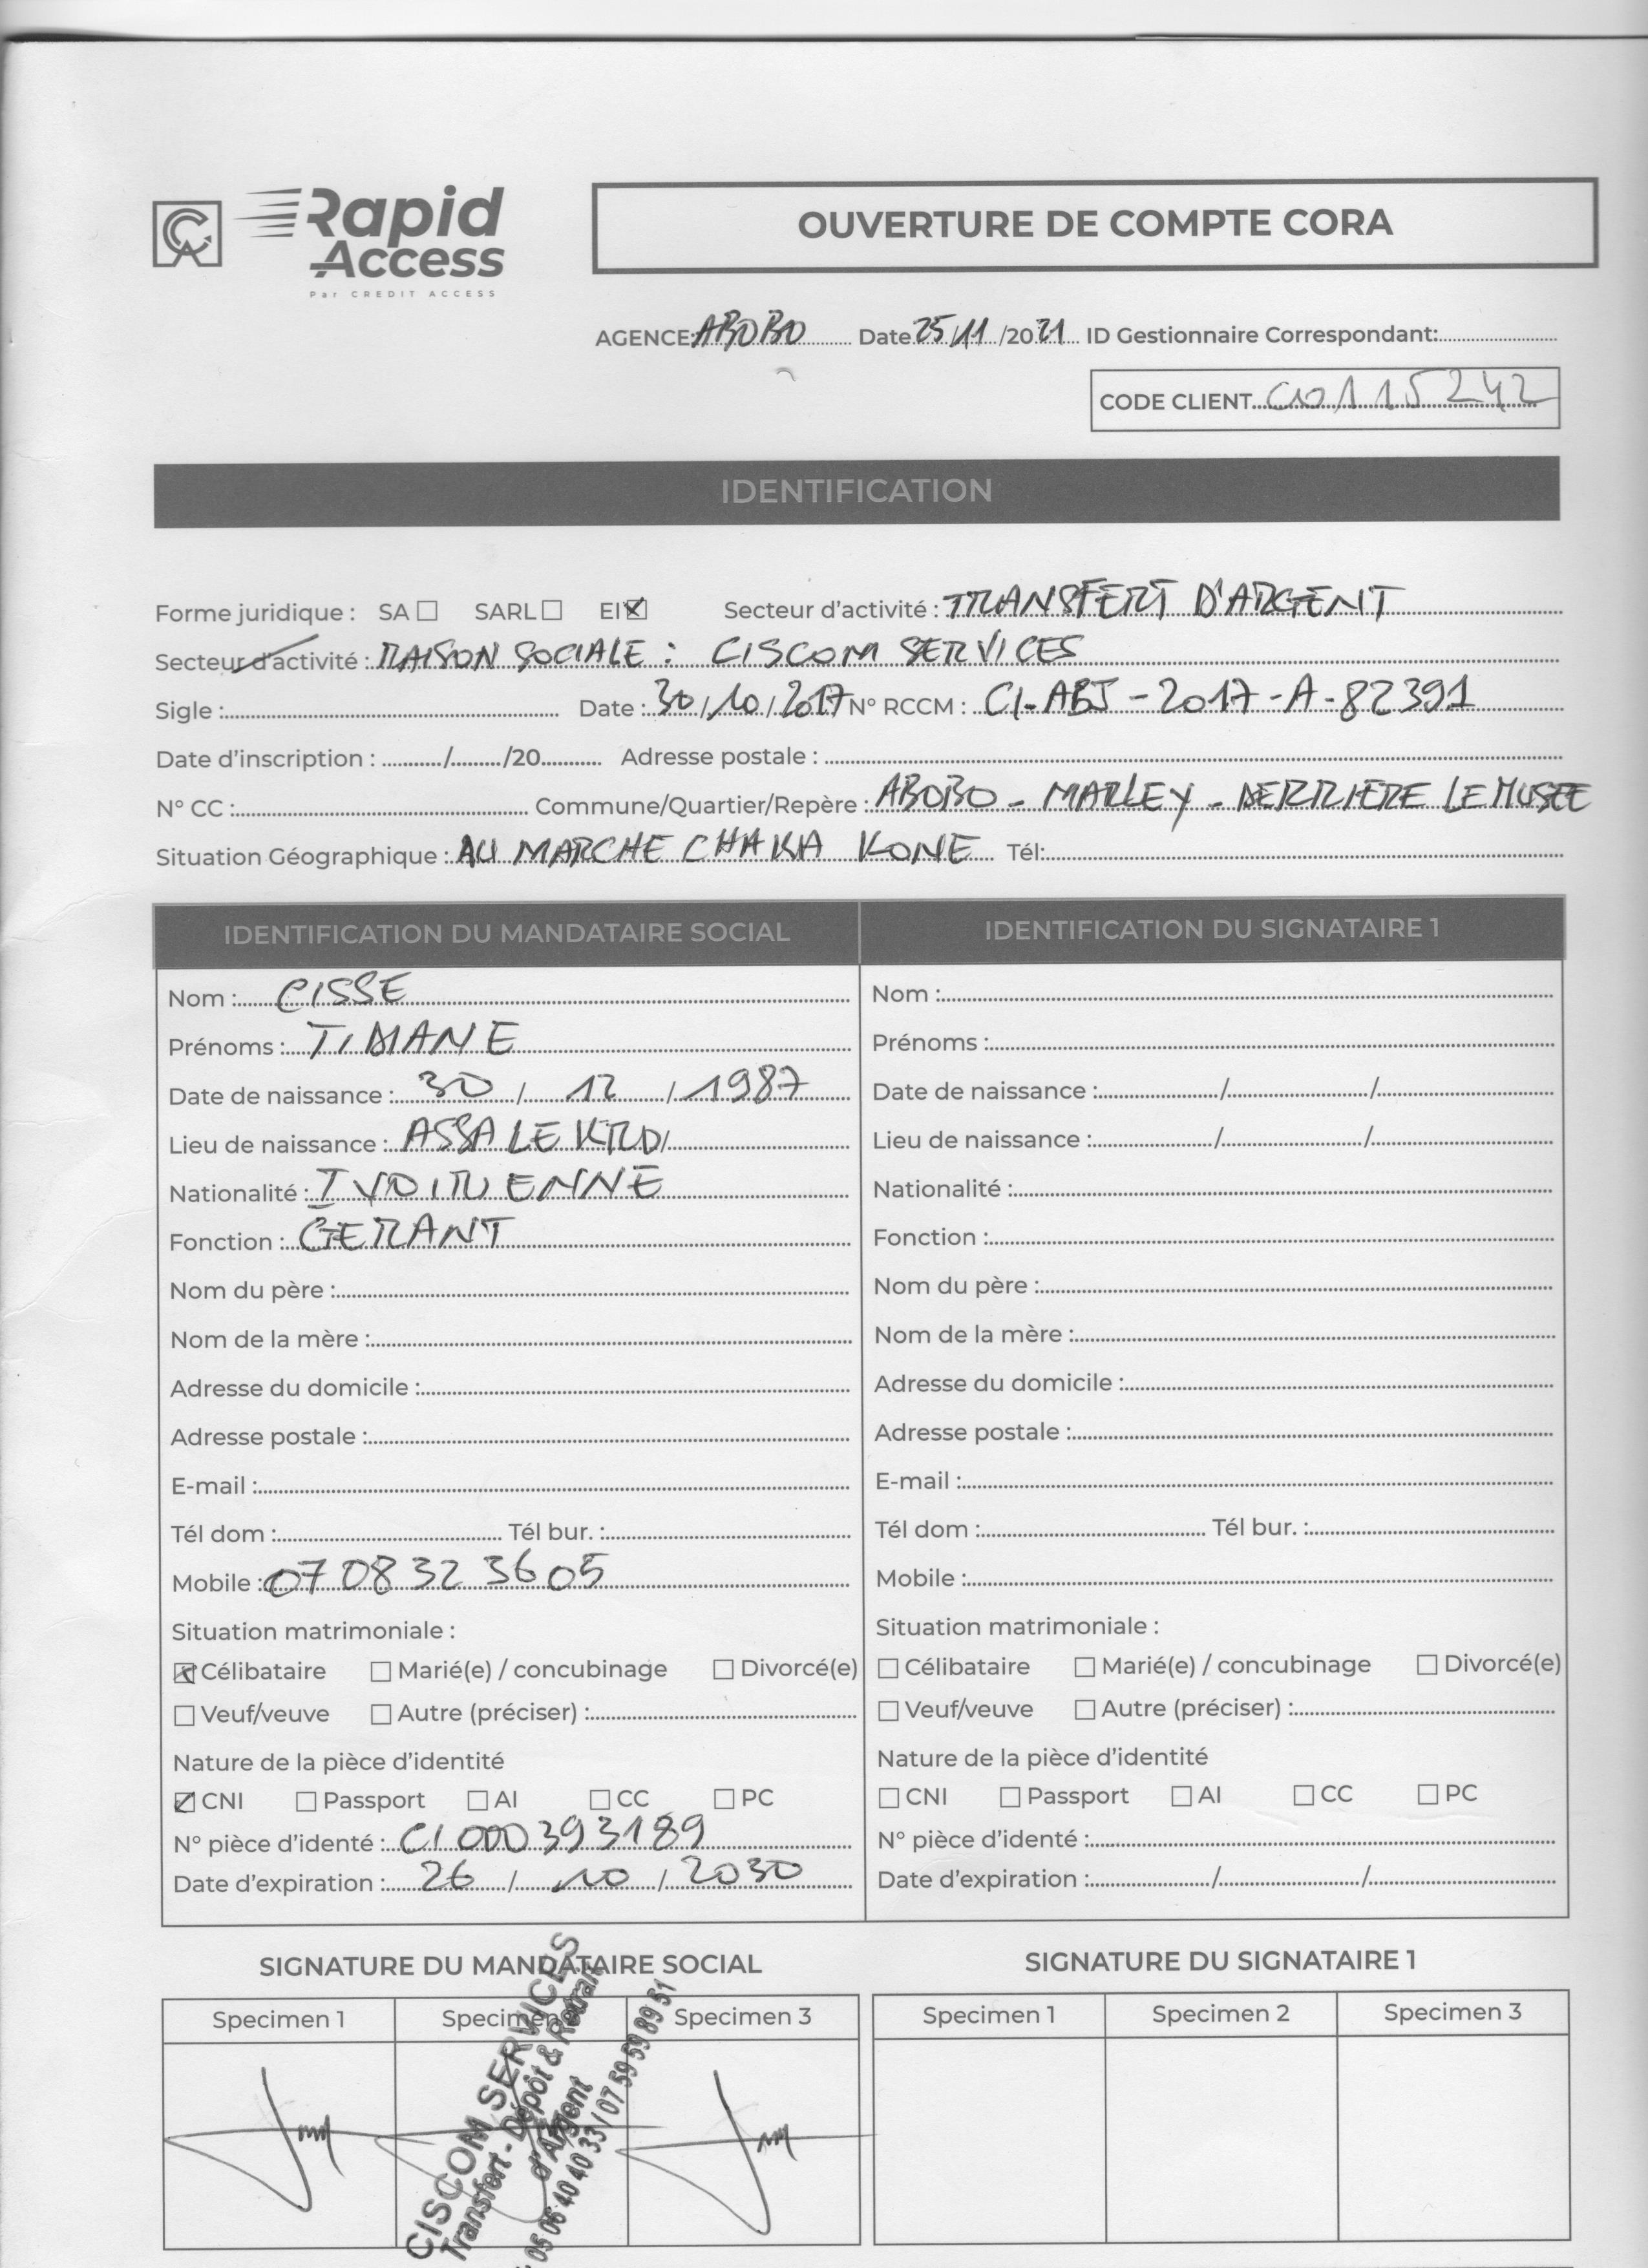 Rapid
Access
Par CREDIT ACCESS
OUVERTURE DE COMPTE CORA
AGENCE: ABOBO Date 25/11/2021 ID Gestionnaire Correspondant:
CODE CLIENT 00115242
IDENTIFICATION
Forme juridique : SA ☐ SARL ☐ EI ☒ Secteur d'activité : TRANSFERT D'ARGENT
Secteur d'activité : RAISON SOCIALE : CISCOM SERVICES
Sigle : Date : 30/10/2017 N° RCCM : CI-ABJ-2017-A-82391
Date d'inscription : / /20 Adresse postale :
N° CC : Commune/Quartier/Repère : ABOBO - MARLEY - DERRIERE LE MUSEE
Situation Géographique : AU MARCHE CHAKA KONE Tél:
IDENTIFICATION DU MANDATAIRE SOCIAL
Nom : CISSE
Prénoms : TIMANE
Date de naissance : 30 / 12 / 1987
Lieu de naissance : ASSALEKRO/
Nationalité : IVOIRIENNE
Fonction : GERANT
Nom du père :
Nom de la mère :
Adresse du domicile :
Adresse postale :
E-mail :
Tél dom : Tél bur. :
Mobile : 07 08 32 36 05
Situation matrimoniale :
☒ Célibataire ☐ Marié(e) / concubinage ☐ Divorcé(e)
☐ Veuf/veuve ☐ Autre (préciser) :
Nature de la pièce d'identité
☑ CNI ☐ Passport ☐ AI ☐ CC ☐ PC
N° pièce d'identé : CI000393189
Date d'expiration : 26 / 10 / 2030
IDENTIFICATION DU SIGNATAIRE 1
Nom :
Prénoms :
Date de naissance : / /
Lieu de naissance : / /
Nationalité :
Fonction :
Nom du père :
Nom de la mère :
Adresse du domicile :
Adresse postale :
E-mail :
Tél dom : Tél bur. :
Mobile :
Situation matrimoniale :
☐ Célibataire ☐ Marié(e) / concubinage ☐ Divorcé(e)
☐ Veuf/veuve ☐ Autre (préciser) :
Nature de la pièce d'identité
☐ CNI ☐ Passport ☐ AI ☐ CC ☐ PC
N° pièce d'identé :
Date d'expiration : / /
SIGNATURE DU MANDATAIRE SOCIAL
Specimen 1 Specimen Specimen 3
CISCOM SERVICES
Transfert - Dépôt & Retrait
d'Argent
05 06 40 40 33 / 07 59 59 89 51
SIGNATURE DU SIGNATAIRE 1
Specimen 1 Specimen 2 Specimen 3